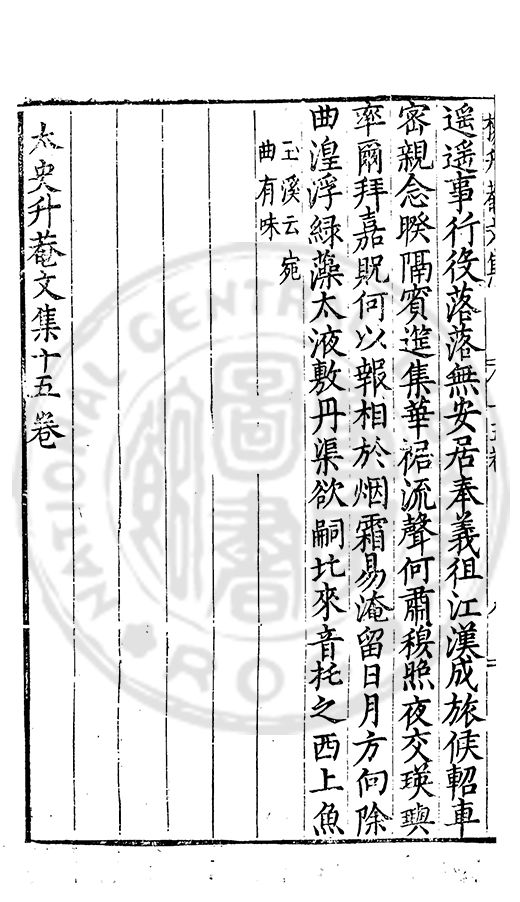 遥遥事行役落落無安居奉義徂江漢成旅候軺車
密親念暌隔賓筵集華裾流聲何肅穆照夜交瑛璵
率爾拜嘉貺何以報相於烟霜易淹留日月方向除
曲湟浮綠藻太液敷丹渠欲嗣比來音托之西上魚
玉溪云宛
曲有味
太史升菴文集十五卷
NATIONAL CENTRAL
圖書
R O